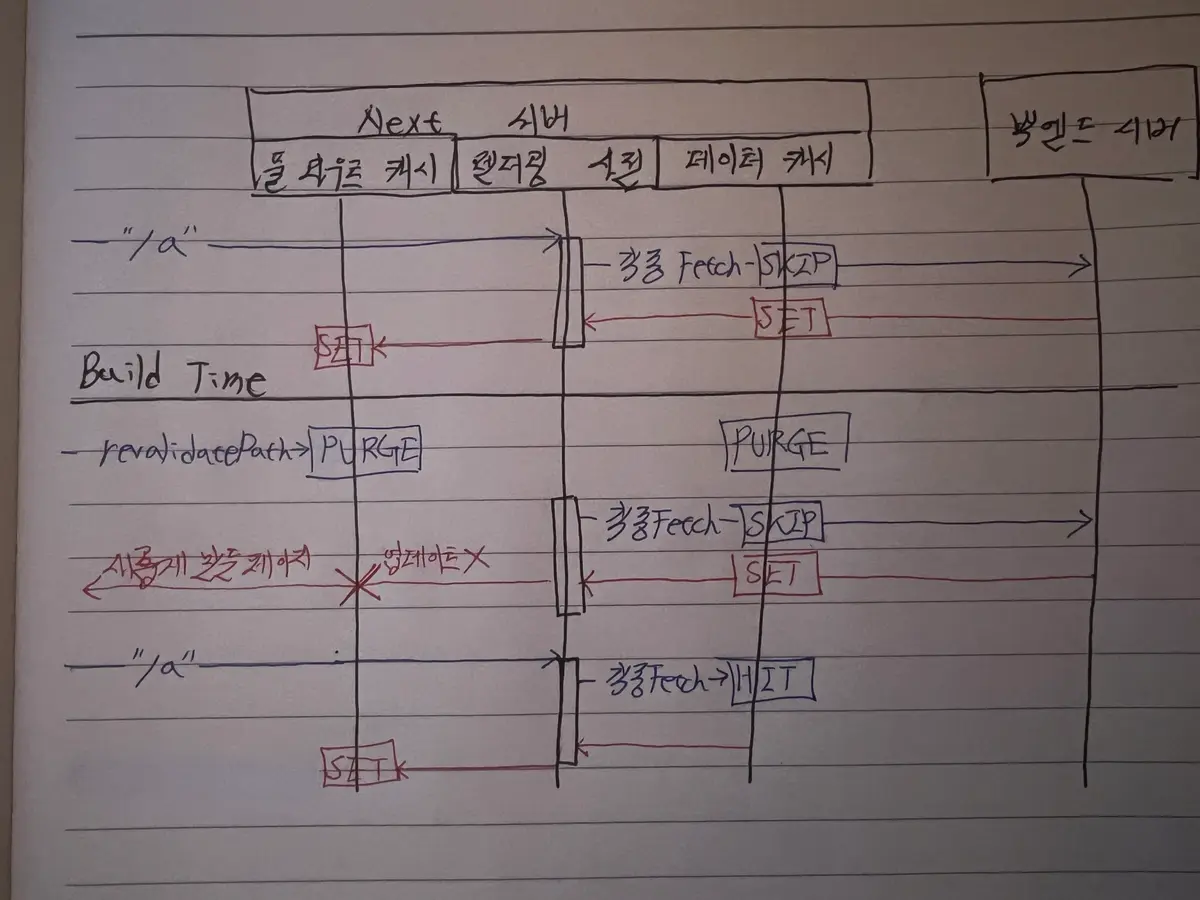 Next 서버
백엔드 서버
풀 라우트 캐시
렌더링 시점
데이터 캐시
"/a"
각종 Fetch
SKIP
SET
SET
Build Time
revalidatePath
PURGE
PURGE
각종 Fetch
SKIP
새롭게 만든 페이지
업데이트 X
SET
"/a"
각종 Fetch
HIT
SET